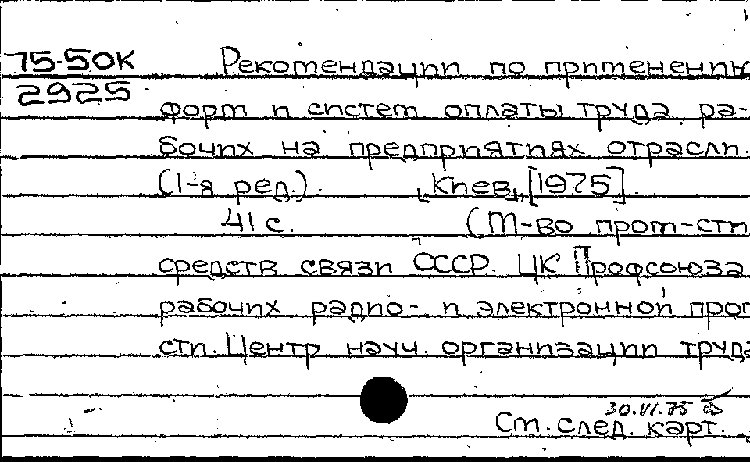 75-50К
2925
Рекомендации по применению
форм и систем оплаты труда ра-
бочих на предприятиях отрасли.
(1-я ред.). Киев, [1975].
41 с. (М-во пром-сти
средств связи СССР. ЦК Профсоюза
рабочих радио- и электронной пром
сти. Центр науч. организации труда
30.VI.75
См. след. карт.